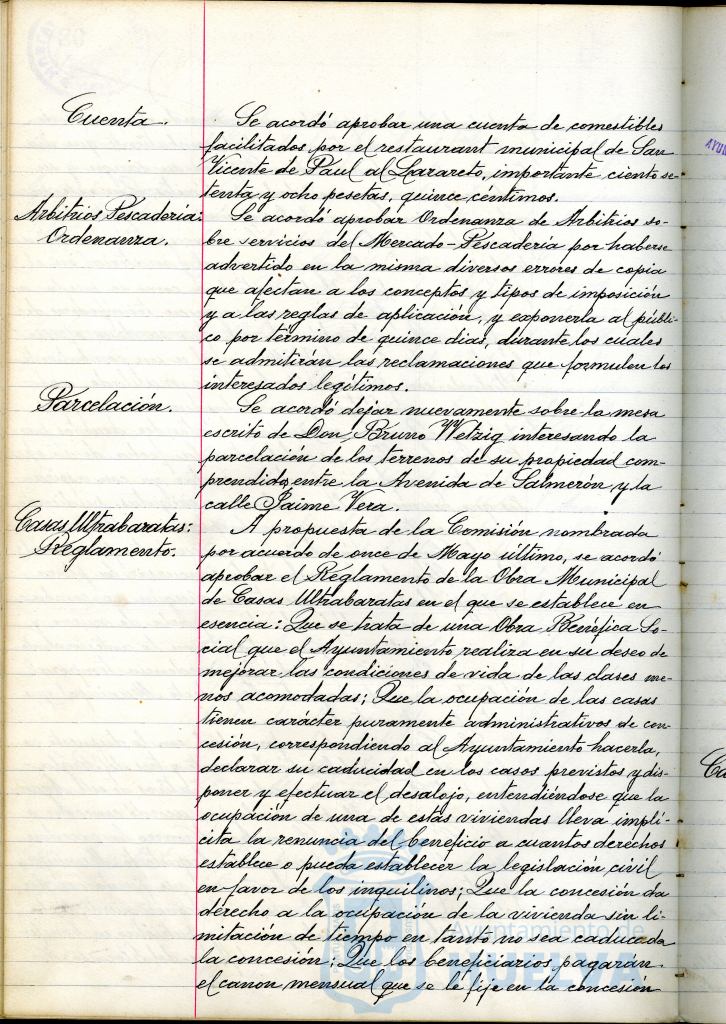 Cuenta.
Se acordó aprobar una cuenta de comestibles
facilitados por el restaurant municipal de San
Vicente de Paul al Lazareto, importante ciento se-
tenta y ocho pesetas, quince céntimos.
Arbitrios Pescadería:
Ordenanza.
Se acordó aprobar Ordenanza de Arbitrios so-
bre servicios del Mercado-Pescadería por haberse
advertido en la misma diversos errores de copia
que afectan a los conceptos y tipos de imposición
y a las reglas de aplicación, y exponerla al públi-
co por término de quince días, durante los cuales
se admitirán las reclamaciones que formulen los
interesados legítimos.
Parcelación.
Se acordó dejar nuevamente sobre la mesa
escrito de Don Bruno Wetzig interesando la
parcelación de los terrenos de su propiedad com-
prendidos entre la Avenida de Salmerón y la
calle Jaime Vera.
Casas Ultrabaratas:
Reglamento.
A propuesta de la Comisión nombrada
por acuerdo de once de Mayo último, se acordó
aprobar el Reglamento de la Obra Municipal
de Casas Ultrabaratas en el que se establece en
esencia: Que se trata de una Obra Benéfica So-
cial que el Ayuntamiento realiza en su deseo de
mejorar las condiciones de vida de las clases me-
nos acomodadas; Que la ocupación de las casas
tienen carácter puramente administrativos de con-
cesión, correspondiendo al Ayuntamiento hacerla,
declarar su caducidad en los casos previstos y dis-
poner y efectuar el desalojo, entendiéndose que la
ocupación de una de estas viviendas lleva implí-
cita la renuncia del beneficio a cuantos derechos
establece o pueda establecer la legislación civil
en favor de los inquilinos; Que la concesión da
derecho a la ocupación de la vivienda sin li-
mitación de tiempo en tanto no sea caducada
la concesión; Que los beneficiarios pagarán
el canon mensual que se le fije en la concesión
Ayuntamiento de